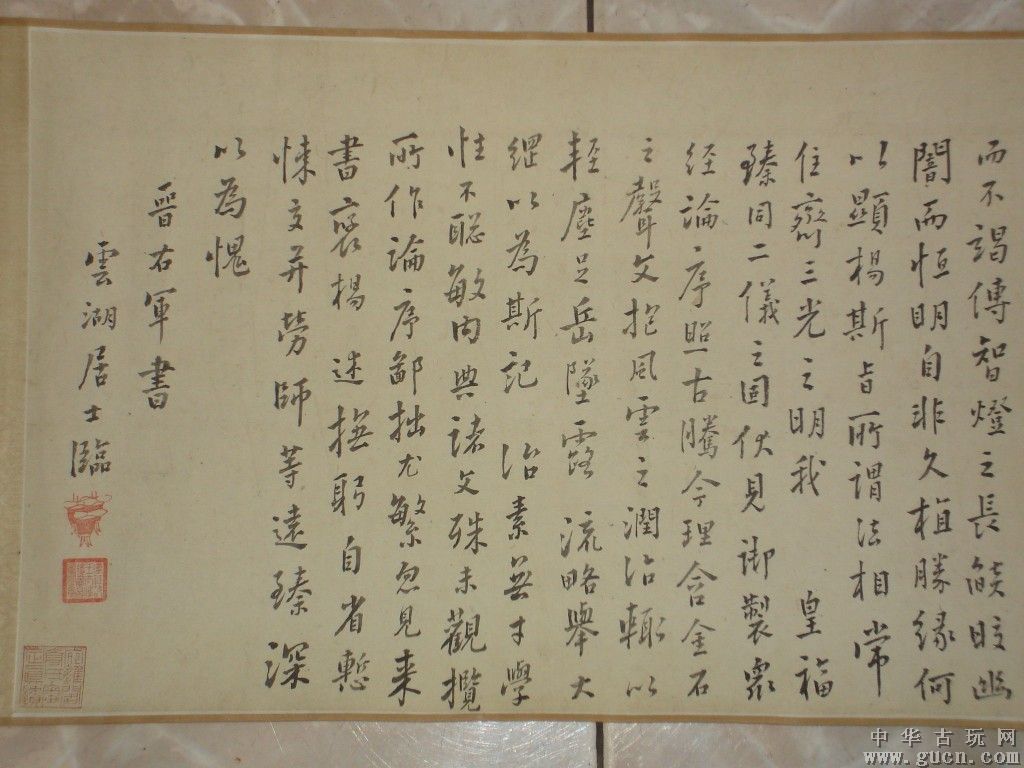 而不竭傳智燈之長燄皎幽
闇而恒明自非久植勝緣何
以顯楊斯旨所謂法相常
住齊三光之明我 皇福
臻同二儀之固伏見御製眾
經論序照古騰今理含金石
之聲文抱風雲之潤治輒以
輕塵足岳墜露流略舉大
綱以為斯記 治素無才學
性不聰敏內典諸文殊未觀攬
所作論序鄙拙尤繁忽見来
書褒楊述撫躬自省慙
悚交并勞師等遠臻深
以為愧
晉右軍書
雲湖居士臨
中华古玩网
www.gucn.com